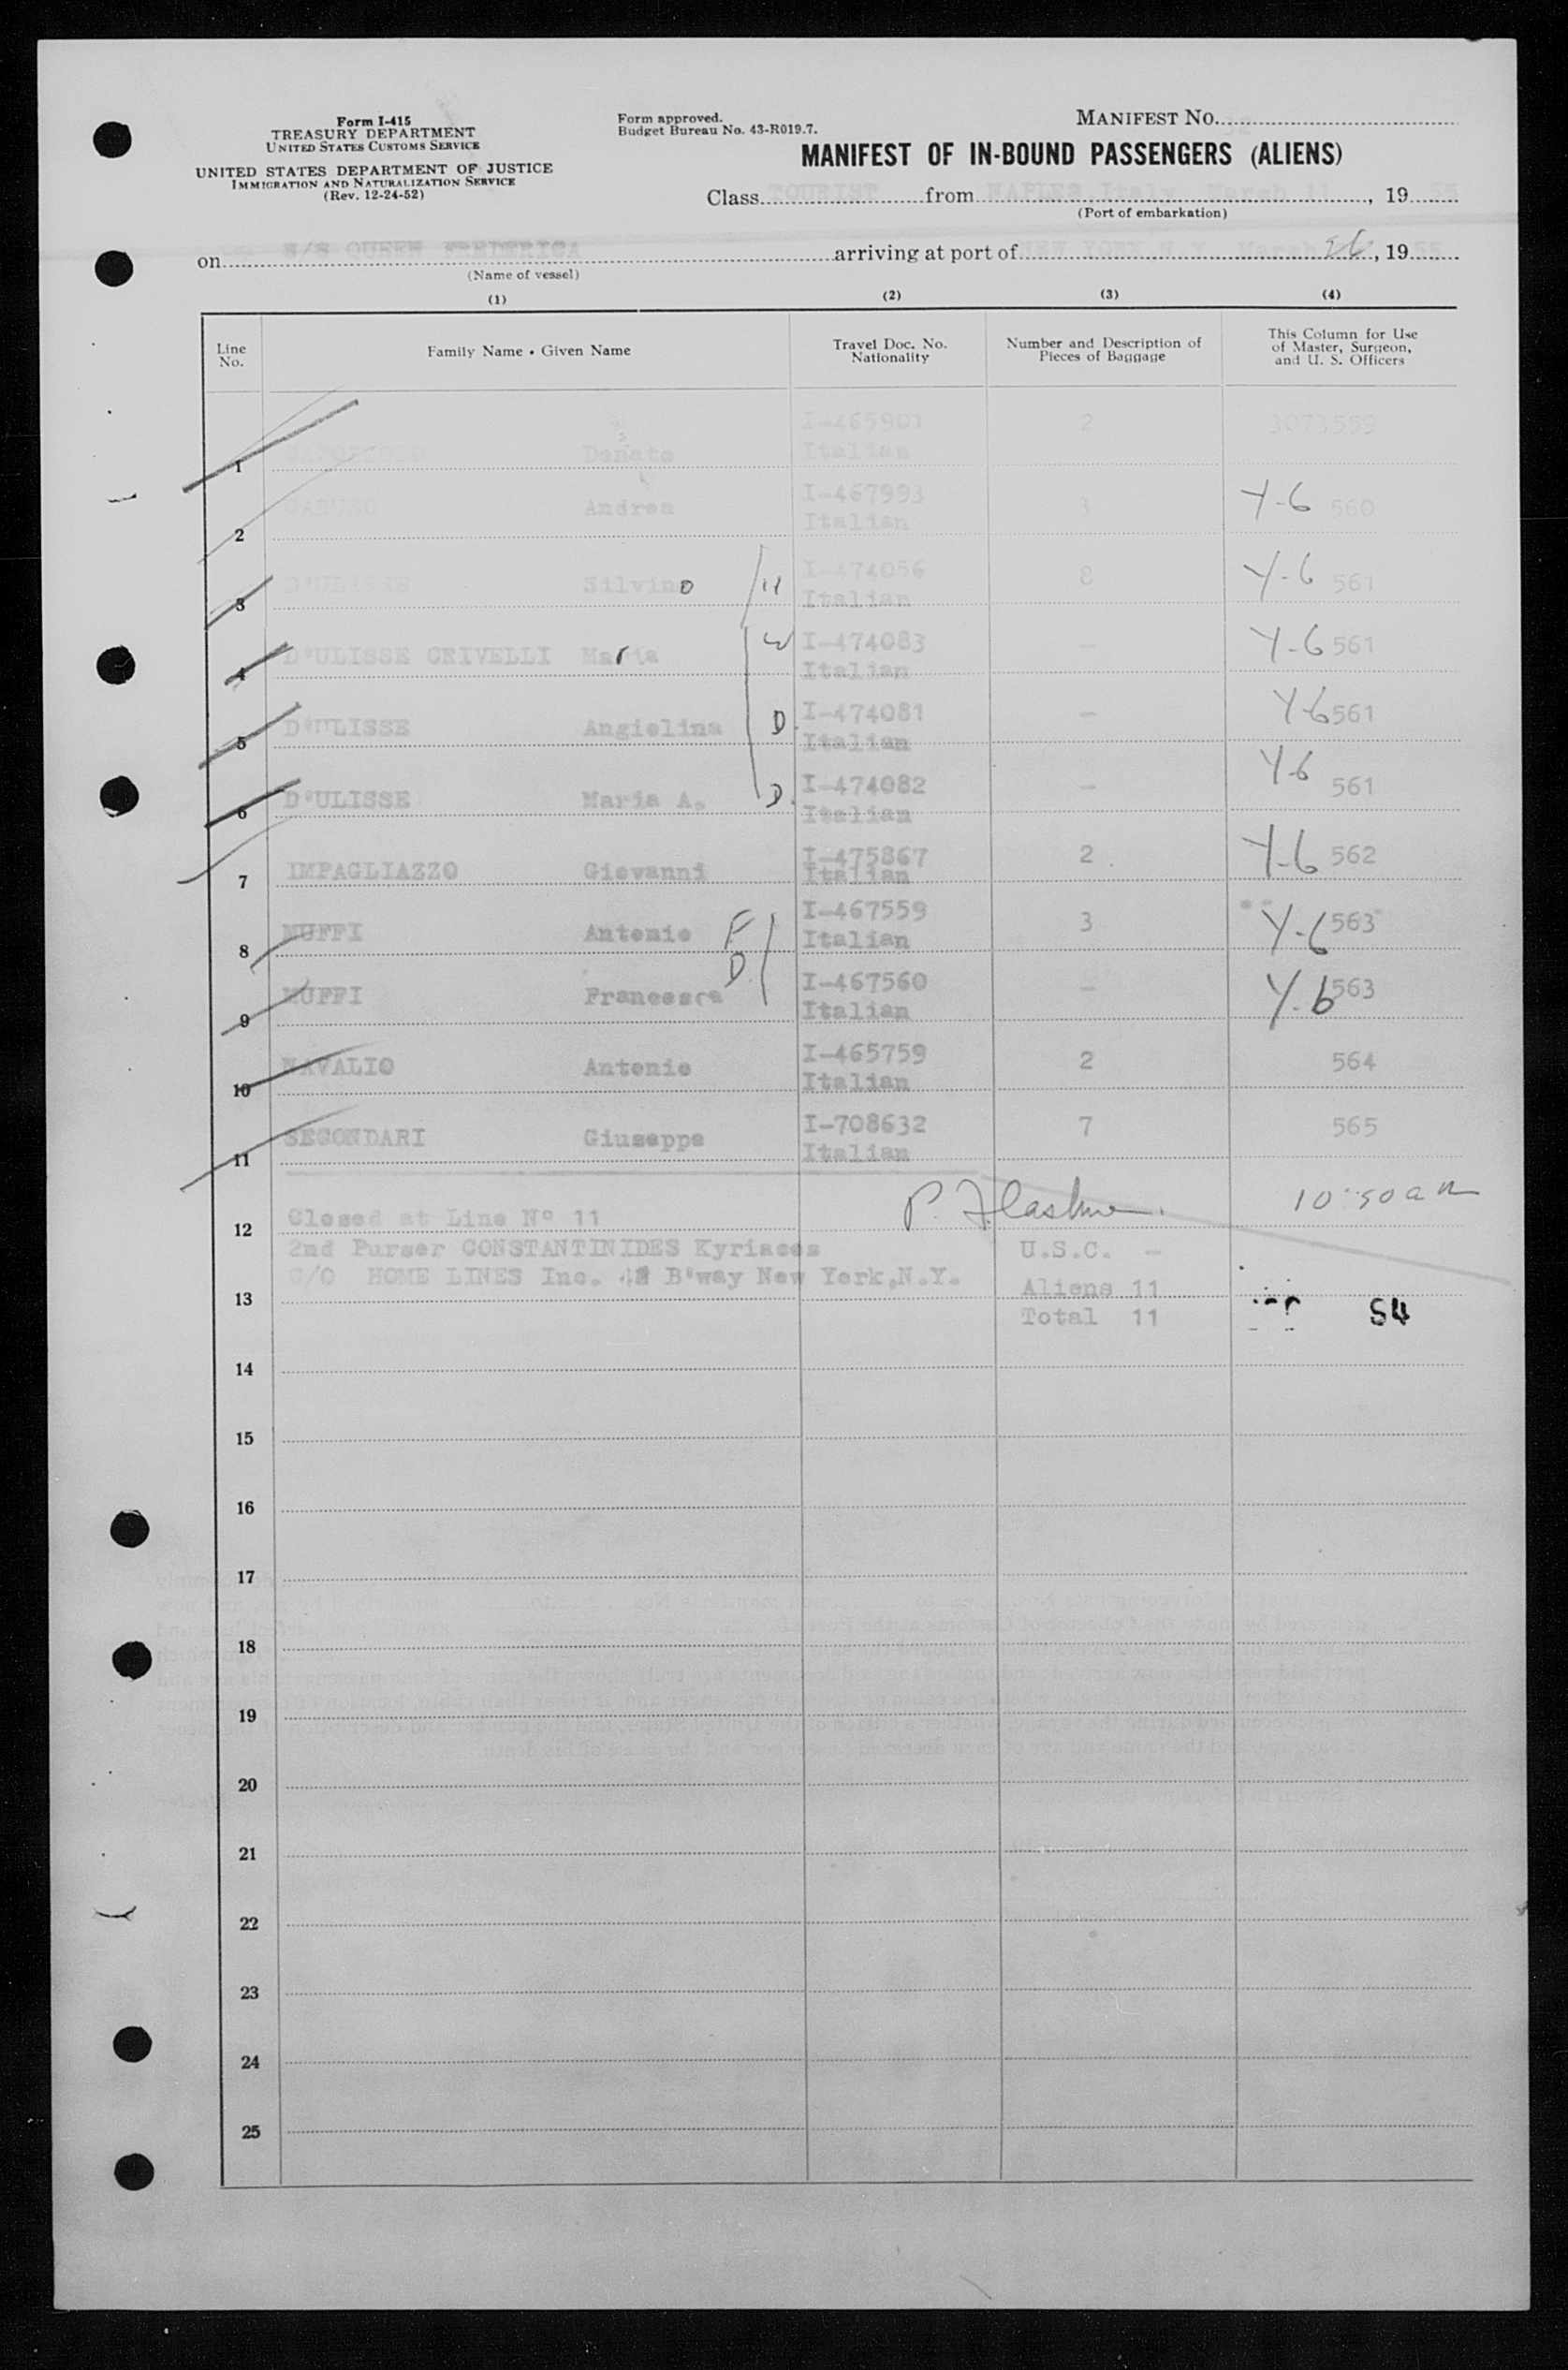 Form I-415
TREASURY DEPARTMENT
UNITED STATES CUSTOMS SERVICE
UNITED STATES DEPARTMENT OF JUSTICE
IMMIGRATION AND NATURALIZATION SERVICE
(Rev. 12-24-52)
Form approved.
Budget Bureau No. 43-R019.7.
MANIFEST NO.
MANIFEST OF IN-BOUND PASSENGERS (ALIENS)
Class TOURIST from NAPLES Italy, March 11, 1955
(Port of embarkation)
on S/S QUEEN FREDERICA arriving at port of NEW YORK N.Y. March 26, 1955
(Name of vessel)
(1) (2) (3) (4)
Line No. Family Name • Given Name Travel Doc. No. Nationality Number and Description of Pieces of Baggage This Column for Use of Master, Surgeon, and U. S. Officers
1 Donato I-465901 Italian 2 3073559
2 CARUSO Andrea I-467993 Italian 3 Y-6 560
3 D'ULISSE Silvino H I-474056 Italian 8 Y-6 561
4 D'ULISSE CRIVELLI Maria W I-474083 Italian - Y-6 561
5 D'ULISSE Angiolina D. I-474081 Italian - Y-6 561
6 D'ULISSE Maria A. D. I-474082 Italian - Y-6 561
7 IMPAGLIAZZO Giovanni I-475867 Italian 2 Y-6 562
8 MUFFI Antonio F I-467559 Italian 3 Y-6 563
9 MUFFI Francesca D I-467560 Italian - Y-6 563
10 NAVALIO Antonio I-465759 Italian 2 564
11 SECONDARI Giuseppe I-708632 Italian 7 565
12 Closed at Line No 11 10:50 am
2nd Purser CONSTANTINIDES Kyriacos U.S.C. -
C/O HOME LINES Inc. 42 B'way New York,N.Y.
13 Aliens 11
Total 11 54
14
15
16
17
18
19
20
21
22
23
24
25